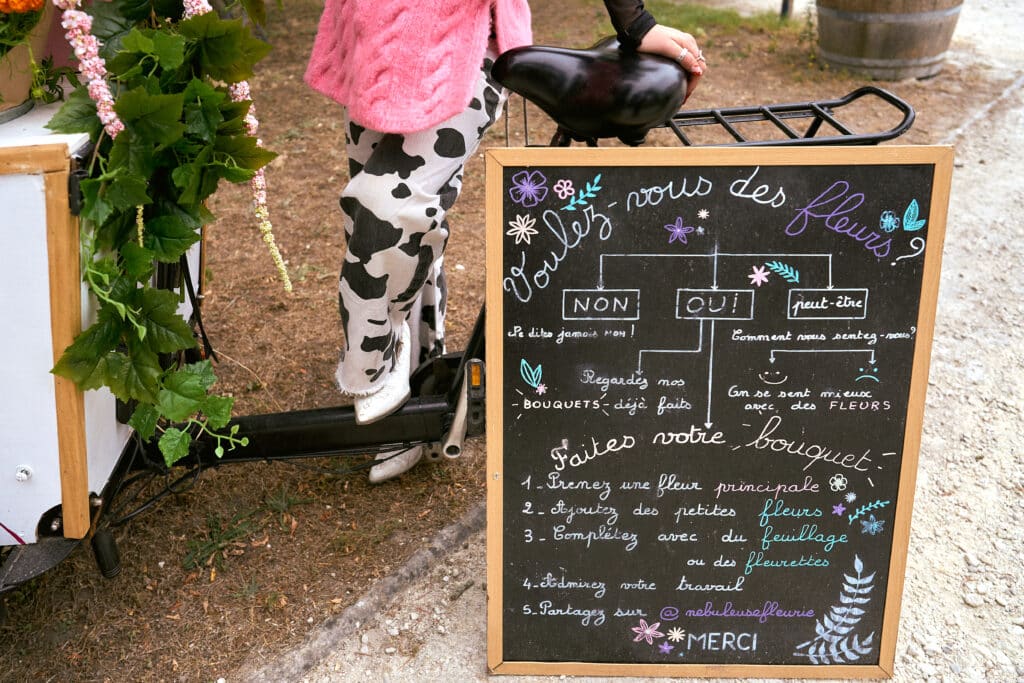 Voulez-vous des fleurs ?
NON OUI peut-être
Ne dites jamais NON !
Comment vous sentez-vous?
Regardez nos
BOUQUETS déjà faits
On se sent mieux
avec des FLEURS
Faites votre bouquet
1_ Prenez une fleur principale
2_ Ajoutez des petites fleurs
3_ Complétez avec du feuillage
ou des fleurettes
4_ Admirez votre travail
5_ Partagez sur @nebuleusefleurie
MERCI